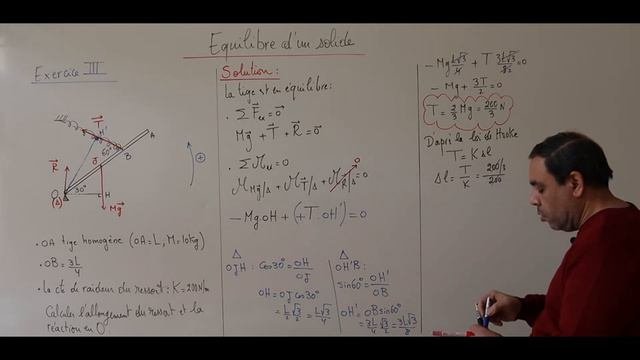 Equilibre d'un solide
Exercice III
T
H'
A
60°
B
J
R
O
(Δ)
30°
H
Mg
+
• OA tige homogène (OA = L, M = 10kg)
• OB = 3L/4
• la cte de raideur du ressort : K = 200N/m
Calculer l'allongement du ressort et la
réaction en O
Solution :
la tige est en équilibre :
• Σ F⃗ex = 0⃗
Mg⃗ + T⃗ + R⃗ = 0⃗
• Σ M = 0
M Mg⃗/Δ + M T⃗/Δ + M R⃗/Δ = 0
0
- Mg OH + (+T. OH') = 0
Δ
OJH : Cos30° = OH/OJ
OH = OJ cos30°
= L/2 √3/2 = L√3/4
Δ
OH'B :
sin60° = OH'/OB
OH' = OB sin60°
= 3L/4 √3/2 = 3L√3/8
- Mg L√3/4 + T 3L√3/8 = 0
- Mg + 3T/2 = 0
T = 2/3 Mg = 200/3 N
D'après la loi de Hooke
T = K Δl
Δl = T/K = 200/3/200